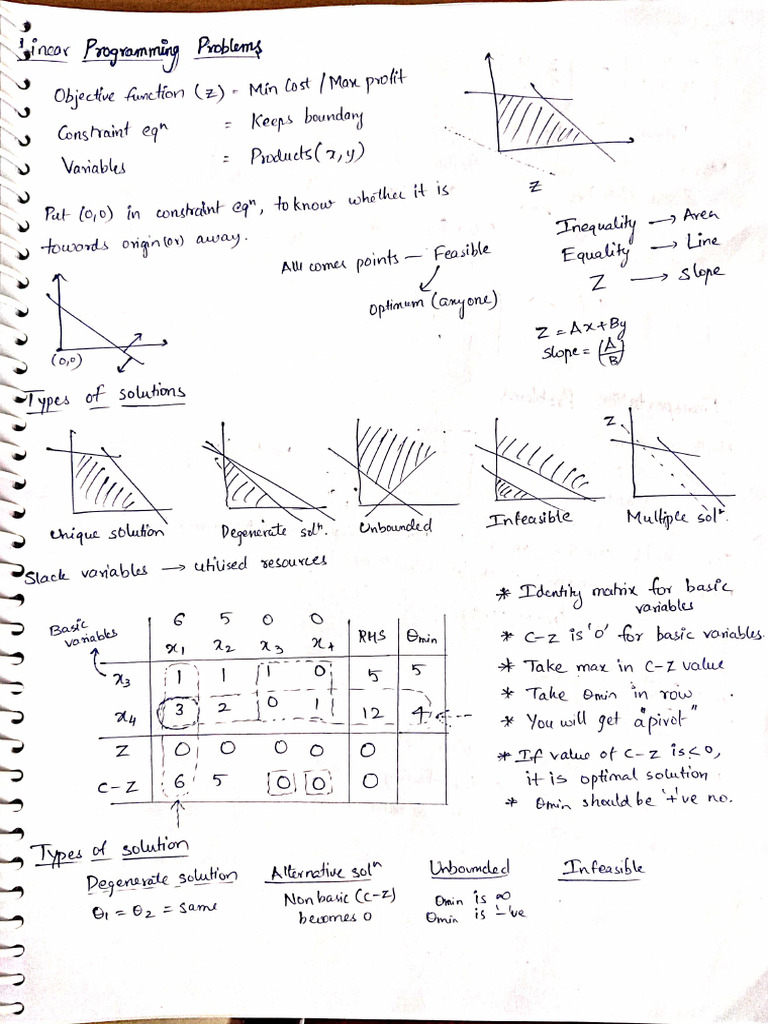 Linear Programming Problems
Objective function (z) = Min Cost / Max profit
Constraint eqⁿ = Keeps boundary
Variables = Products (x, y)
Z
Put (0,0) in constraint eqⁿ, to know whether it is
towards origin (or) away.
Inequality → Area
Equality → Line
Z → Slope
All corner points — Feasible
Optimum (anyone)
Z = Ax + By
Slope = (A/B)
(0,0)
Types of solutions
Z
Unique solution
Degenerate solⁿ.
Unbounded
Infeasible
Multiple solⁿ
Slack variables → utilised resources
6 5 0 0
Basic variables x₁ x₂ x₃ x₄ RHS θmin
x₃ 1 1 1 0 5 5
x₄ 3 2 0 1 12 4
Z 0 0 0 0 0
C-Z 6 5 0 0 0
* Identity matrix for basic
variables
* C-Z is '0' for basic variables.
* Take max in C-Z value
* Take θmin in row
* You will get a "pivot"
* If value of C-Z is < 0,
it is optimal solution
* θmin should be '+'ve no.
Types of solution
Degenerate solution
θ₁ = θ₂ = same
Alternative solⁿ
Non basic (C-Z)
becomes 0
Unbounded
θmin is ∞
θmin is '-'ve
Infeasible